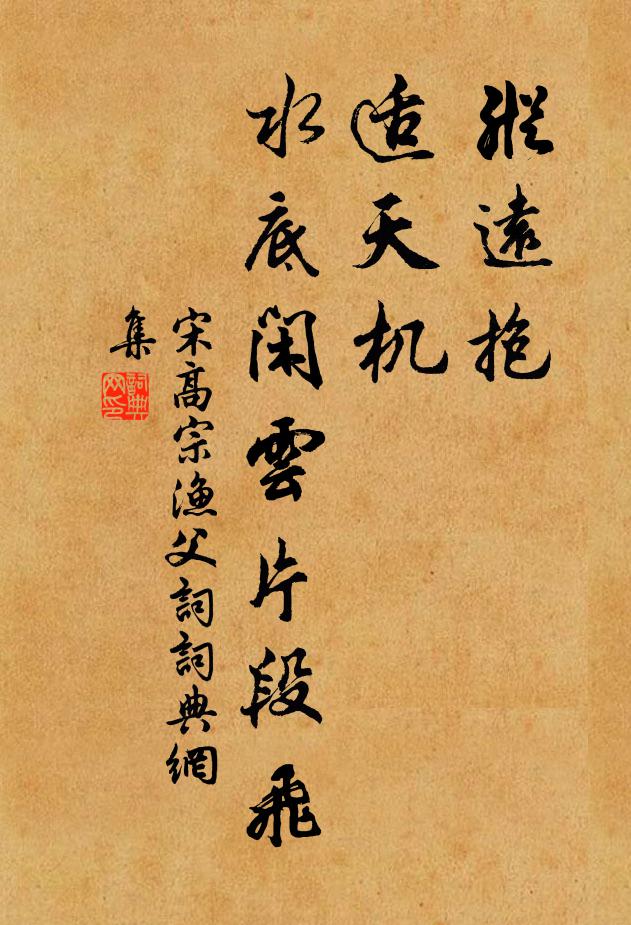 縱遠抱
适天机
水底閑雲片段飛
宋高宗漁父詞詞典網
集
詞典網印